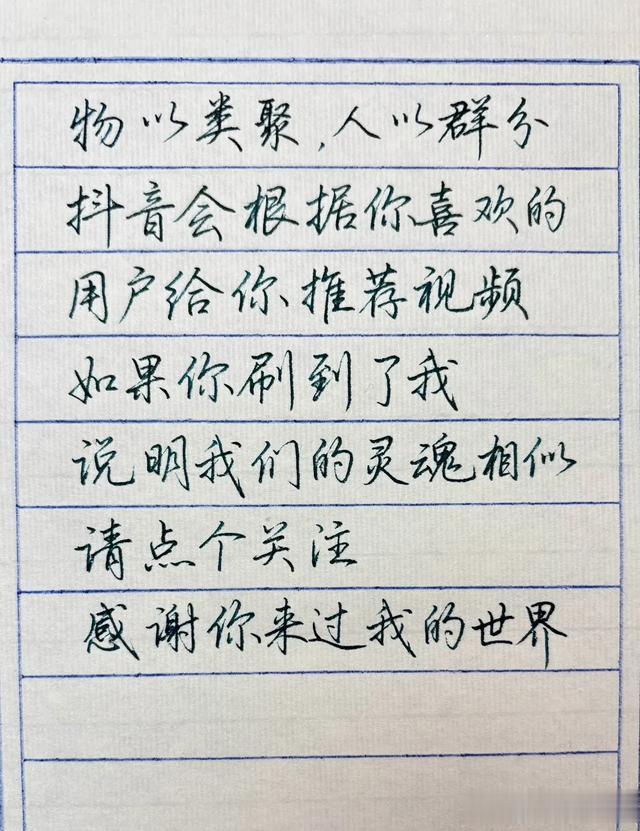 物以类聚,人以群分
抖音会根据你喜欢的
用户给你推荐视频
如果你刷到了我
说明我们的灵魂相似
请点个关注
感谢你来过我的世界